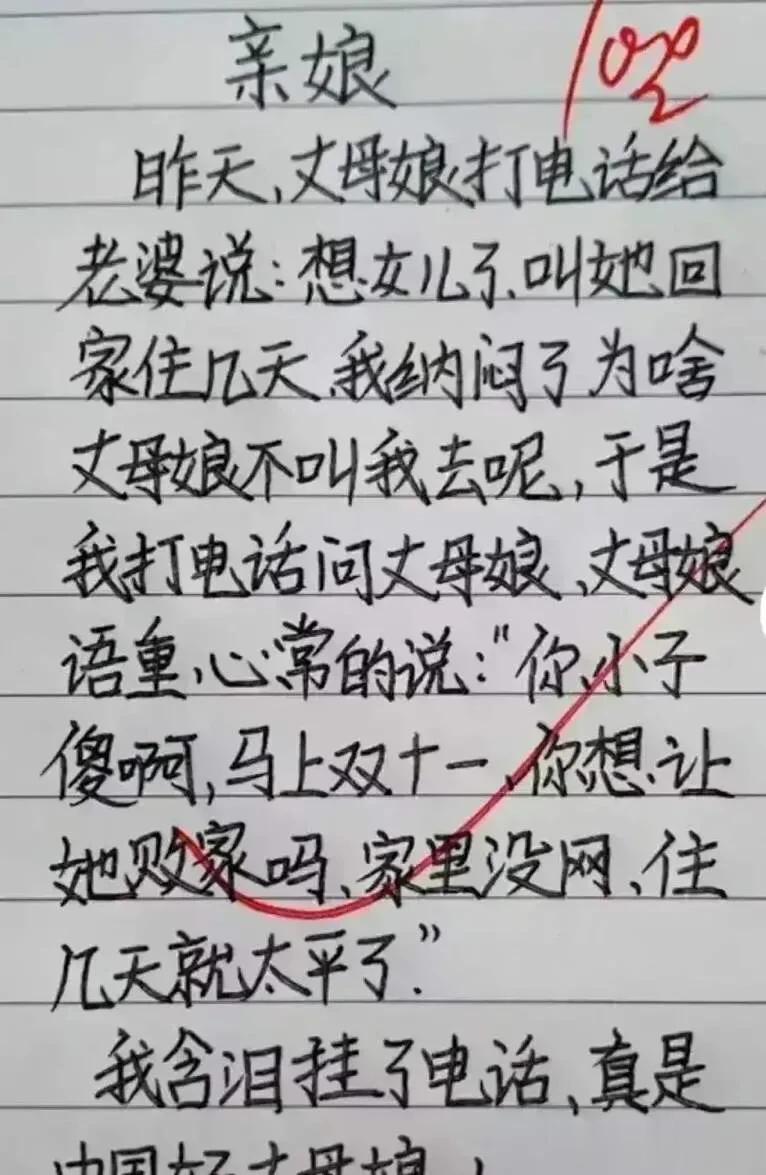 亲娘
100
昨天、丈母娘打电话给
老婆说:想女儿了、叫她回
家住几天、我纳闷了为啥
丈母娘不叫我去呢,于是
我打电话问丈母娘、丈母娘
语重心常的说:"你小子
傻啊,马上双十一、你想让
她败家吗、家里没网、住
几天就太平了."
我含泪挂了电话、真是
中国好丈母娘!